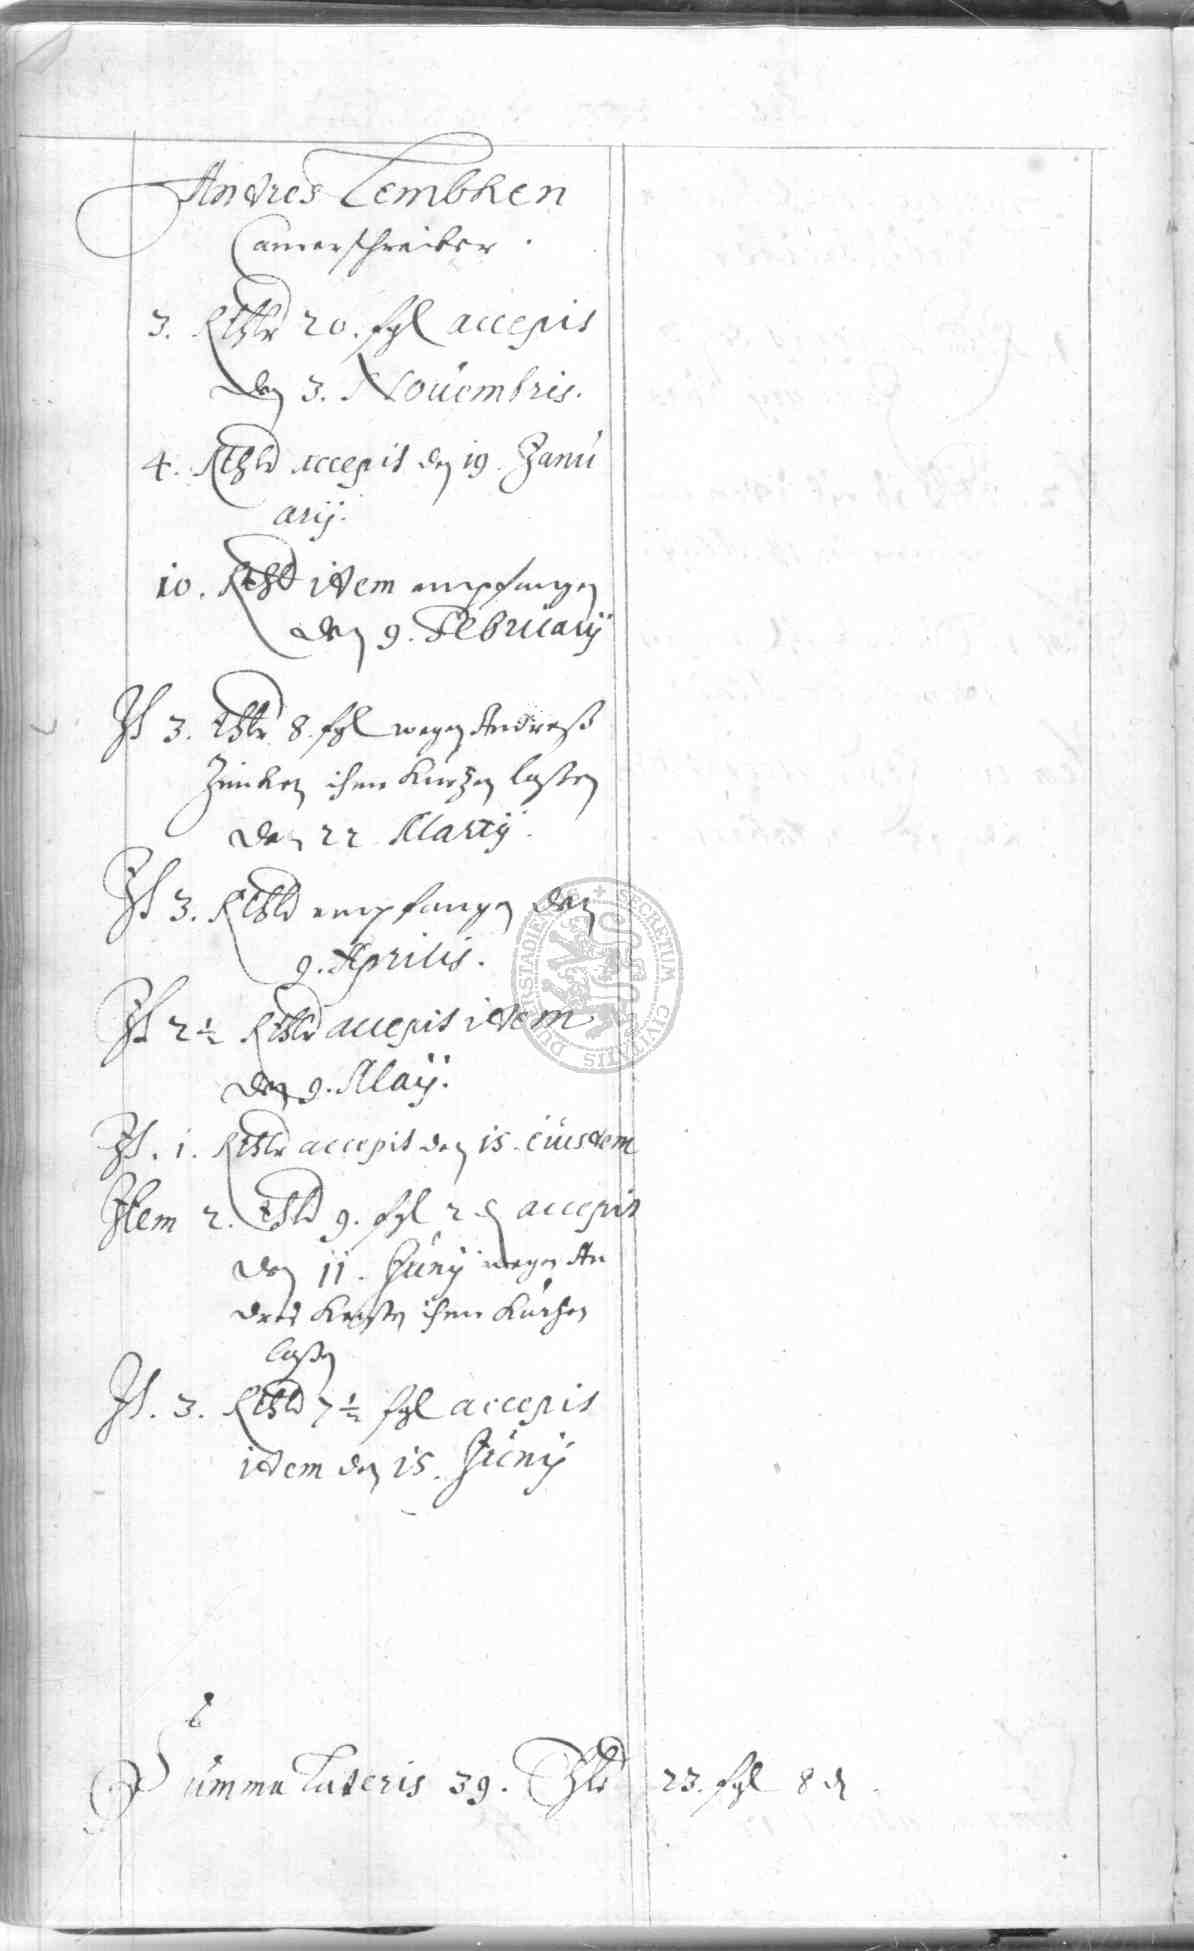 Andres Lembken
Camerschreiber.
3. Rthlr 20. fgl accepit
den 3. Nouembris.
4. Rthlr accepit den 19. Janu
arij.
10. Rthlr idem empfangen
den 9. Februarij
It 3. Rthlr 8. fgl wegen Andreß
ihm Kurzen laßen
den 22 Martij.
It 3. Rthlr empfangen den
9. Aprilis.
It 2½ Rthlr accepit idem
den 9. Maij.
It. 1. Rthlr accepit den 15. eiusdem
Item 2. Rthlr 9. fgl 2 ₰ accepit
den 11. Junij wegen An
dres ihm Kürtzen
laßen
It. 3. Rthlr 7½ fgl accepit
idem den 15. Junij
Summa Lateris 39. Thlr 23. fgl 8 ₰.
SECRETUM CIVITATIS DUDERSTADIENSIS